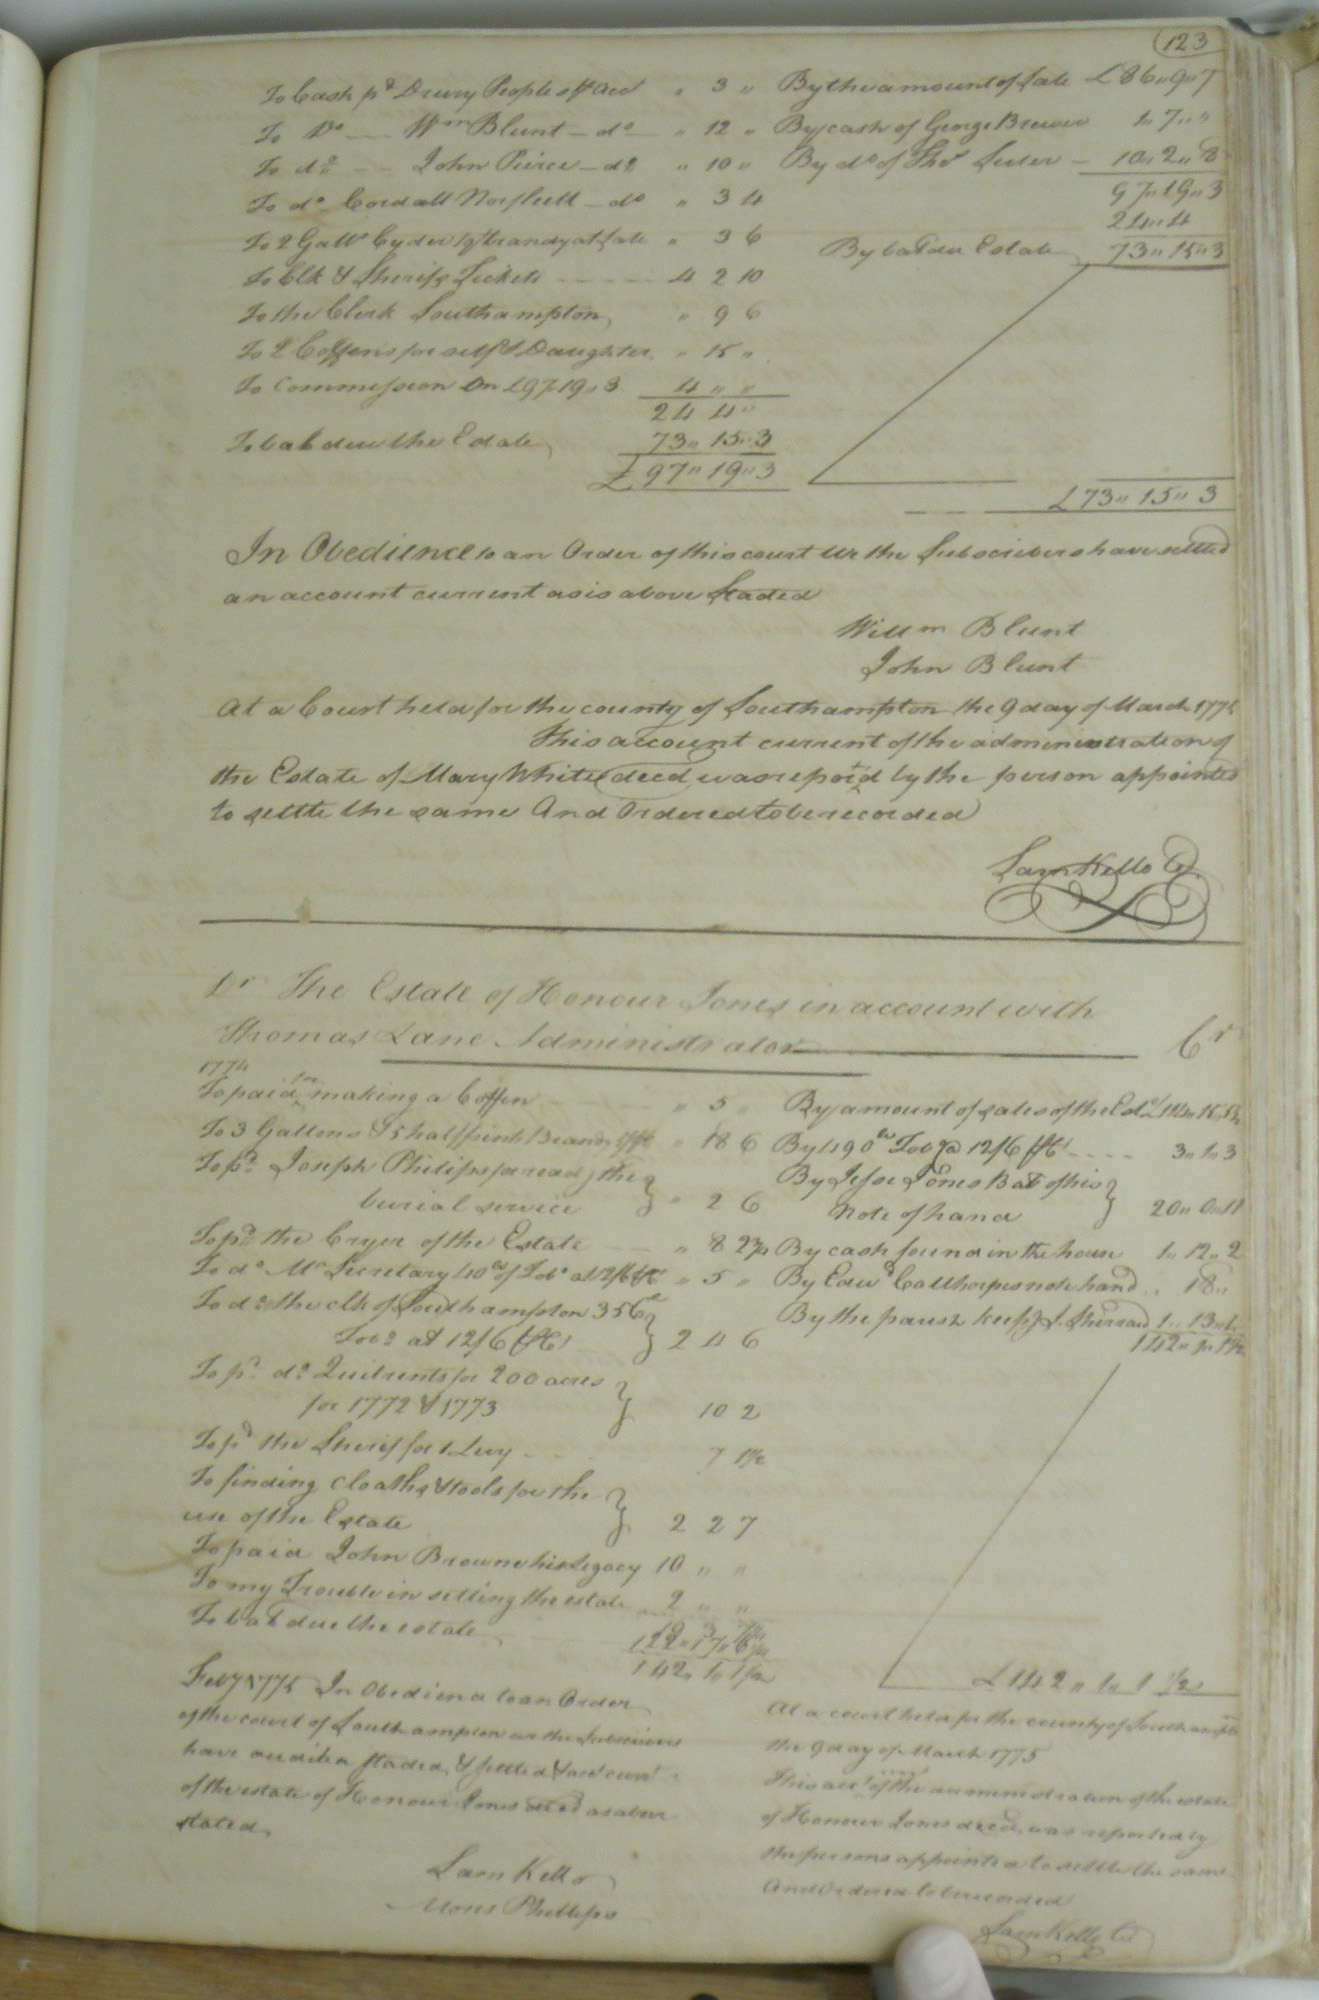 123
To Cash pd Drury People off Acct " 3 " By the amount of Sale £86,,9,,7
To Do — Wm Blunt — do — " 12 " By cash of George Brewer 1,,7,,"
To do — John Peirce — do " 10 " By do of Thos Lester — 10,,2,,8
To do Cordall Norfleett — do " 3 4 97,,19,,3
24,,4
To 2 Galls Cyder 1 qt brandy at Sale " 3 6 By bal due Estate 73,,15,,3
To Clk & Sherifs Tickets - - - - 4 2 10
To the Clerk Southampton " 9 6
To 2 Coffens for self & Daughter " 15 "
To Commission On £97,,19,,3 4 " "
24 4 "
To bal due the Estate 73,,15,,3
£97,,19,,3
£73,,15,,3
In Obedience to an Order of this court We the Subscribers have settled
an account current as is above Staded
Willm Blunt
John Blunt
At a Court held for the county of Southampton the 9 day of March 1775
This account current of the administration of
the Estate of Mary White decd was repotd by the person appointed
to settle the same And Ordered to be recorded
Sam Kello Cl.
Dr The Estate of Honour Jones in account with
Thomas Lane Administrator Cr
1774
To paid for making a Coffen " 5 " By amount of sales of the Est
To 3 Gallons & 5 half pints Brandy " 18 6 By 490 lb Tob @ 12/6 - - - - 3,,1,,3
To pd Joseph Philips for readg the By Jesse Jones Bal of his
burial service " 2 6 Note of hand 20,,0,,11
To pd the Cryer of the Estate " 8 By cash found in the house 1,,12,,2
To do Mr Secretary 40 lb of Tobo at 12/6 " 5 " By Edwd Calthorpes note hand .. 18,,
To do the clk of Southampton 356 By the parish keepg S. Sherrard 1,,13,,
Tobo at 12/6 2 4 6 142,,1,,1½
To pd do Quitrents for 200 acres
for 1772 & 1773 10 2
To pd the Sherif for 1 Levy - - 7 1½
To finding cloaths & tools for the
use of the Estate 2 2 7
To paid John Browne his Legacy 10 " "
To my Trouble in setling the estate 2 " "
To bal due the estate 122,,17,,6
142,,1,,1½ £142,,1,,1½
Feby 1775 In Obedience to an Order
of the court of Southampton we the Subscribers
have audited staded & settled & acct curnt
of the estate of Honour Jones decd as above
stated
Sam Kello
Mons Phillips
At a court held for the county of Southampton
the 9 day of March 1775
This acct currt of the administration of the estate
of Honour Jones decd was reported by
the persons appointed to settle the same
And Ordered to be recorded
Sam Kello Cl